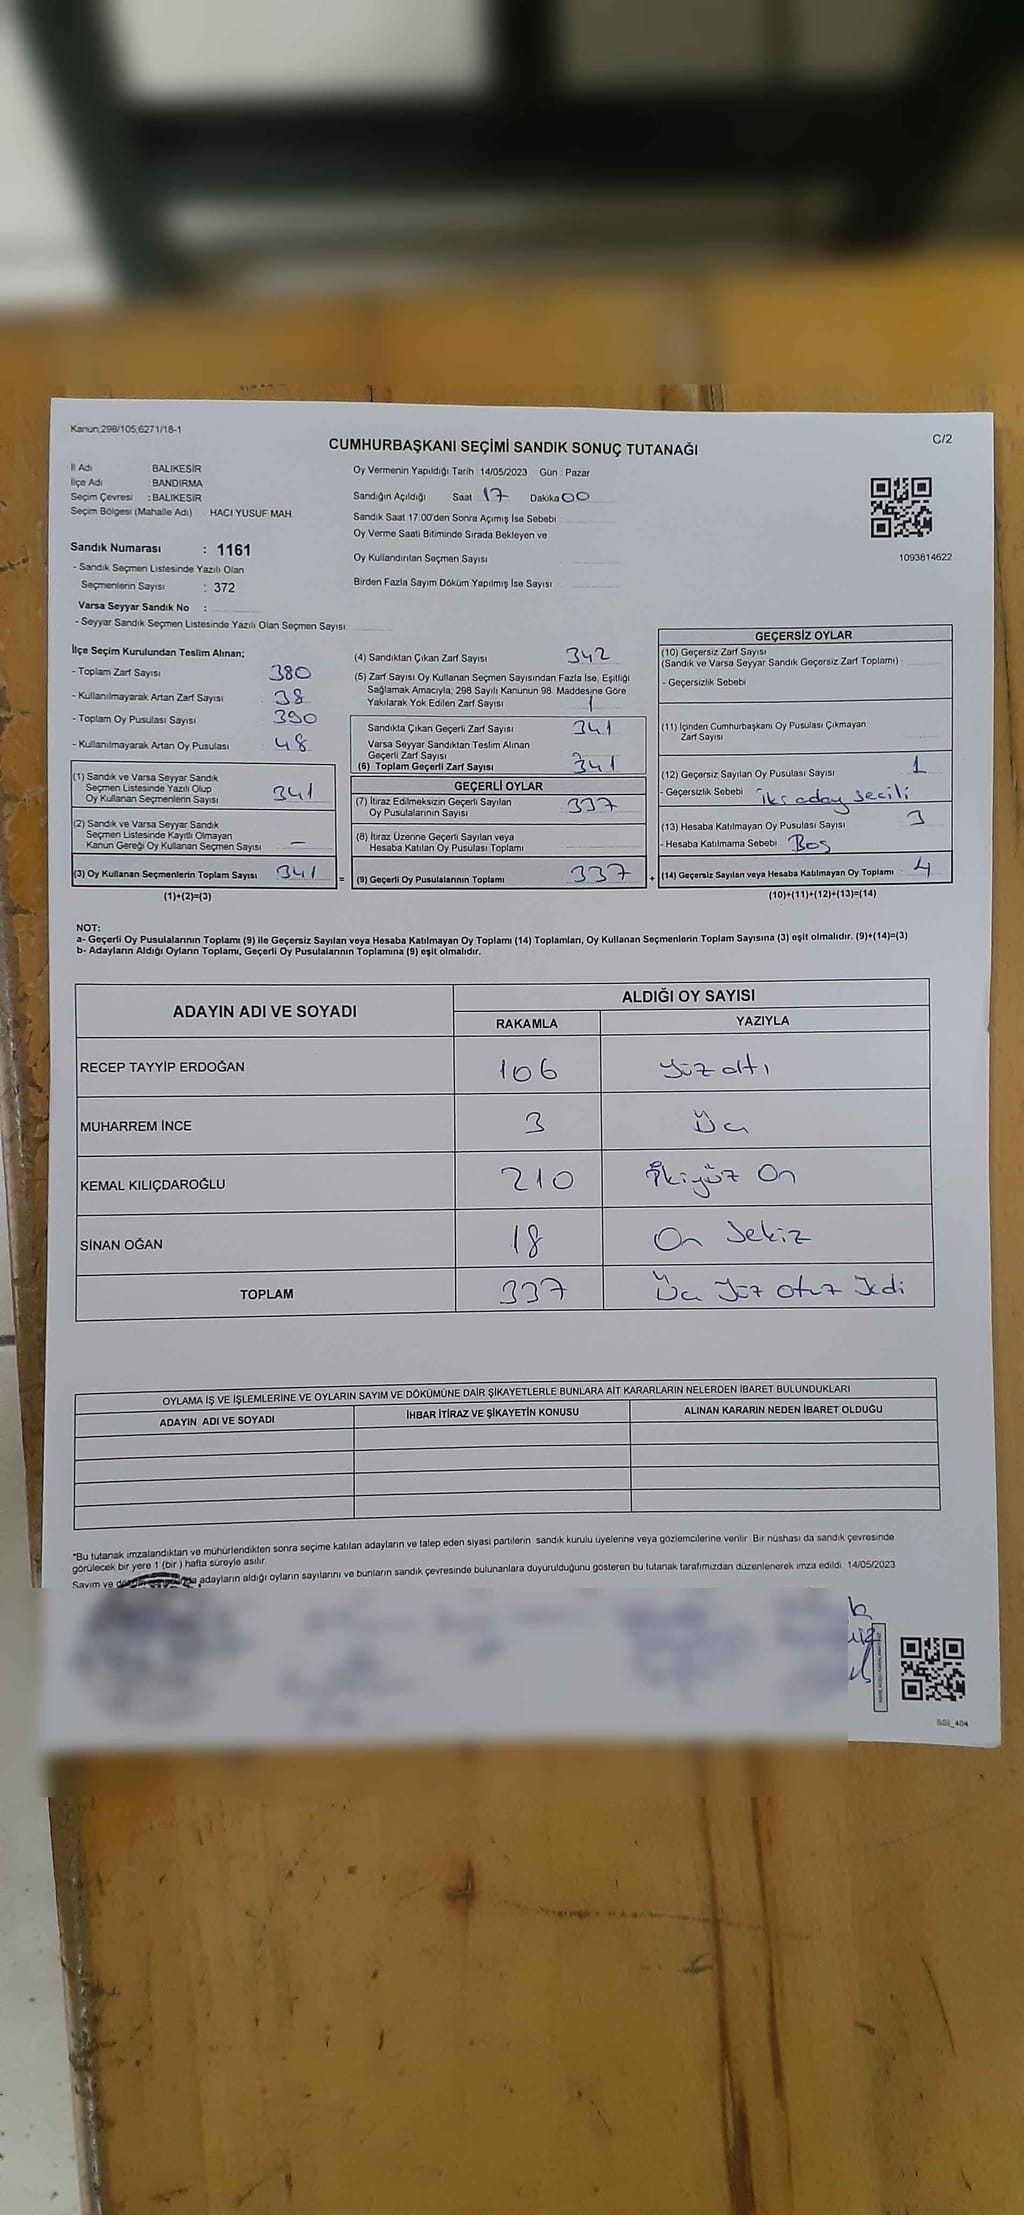 Kanun,298/105,6271/18-1
C/2
CUMHURBAŞKANI SEÇİMİ SANDIK SONUÇ TUTANAĞI
İl Adı BALIKESİR
İlçe Adı BANDIRMA
Seçim Çevresi : BALIKESİR
Seçim Bölgesi (Mahalle Adı) HACI YUSUF MAH
Sandık Numarası : 1161
- Sandık Seçmen Listesinde Yazılı Olan
Seçmenlerin Sayısı : 372
Varsa Seyyar Sandık No :
- Seyyar Sandık Seçmen Listesinde Yazılı Olan Seçmen Sayısı:
Oy Vermenin Yapıldığı Tarih : 14/05/2023 Gün : Pazar
Sandığın Açıldığı Saat 17 Dakika 00
Sandık Saat 17:00'den Sonra Açımış İse Sebebi :
Oy Verme Saati Bitiminde Sırada Bekleyen ve
Oy Kullandırılan Seçmen Sayısı
Birden Fazla Sayım Döküm Yapılmış İse Sayısı
1093814622
İlçe Seçim Kurulundan Teslim Alınan;
- Toplam Zarf Sayısı : 380
- Kullanılmayarak Artan Zarf Sayısı : 38
- Toplam Oy Pusulası Sayısı : 390
- Kullanılmayarak Artan Oy Pusulası : 48
(1) Sandık ve Varsa Seyyar Sandık
Seçmen Listesinde Yazılı Olup
Oy Kullanan Seçmenlerin Sayısı : 341
(2) Sandık ve Varsa Seyyar Sandık
Seçmen Listesinde Kayıtlı Olmayan
Kanun Gereği Oy Kullanan Seçmen Sayısı : -
(3) Oy Kullanan Seçmenlerin Toplam Sayısı : 341
(1)+(2)=(3)
(4) Sandıktan Çıkan Zarf Sayısı : 342
(5) Zarf Sayısı Oy Kullanan Seçmen Sayısından Fazla İse, Eşitliği
Sağlamak Amacıyla, 298 Sayılı Kanunun 98. Maddesine Göre
Yakılarak Yok Edilen Zarf Sayısı : 1
Sandıkta Çıkan Geçerli Zarf Sayısı : 341
Varsa Seyyar Sandıktan Teslim Alınan
Geçerli Zarf Sayısı
(6) Toplam Geçerli Zarf Sayısı : 341
GEÇERLİ OYLAR
(7) İtiraz Edilmeksizin Geçerli Sayılan
Oy Pusulalarının Sayısı : 337
(8) İtiraz Üzerine Geçerli Sayılan veya
Hesaba Katılan Oy Pusulası Toplamı :
= (9) Geçerli Oy Pusulalarının Toplamı : 337 +
GEÇERSİZ OYLAR
(10) Geçersiz Zarf Sayısı
(Sandık ve Varsa Seyyar Sandık Geçersiz Zarf Toplamı) :
- Geçersizlik Sebebi
(11) İçinden Cumhurbaşkanı Oy Pusulası Çıkmayan
Zarf Sayısı :
(12) Geçersiz Sayılan Oy Pusulası Sayısı : 1
- Geçersizlik Sebebi : iki aday seçili
(13) Hesaba Katılmayan Oy Pusulası Sayısı : 3
- Hesaba Katılmama Sebebi : Boş
(14) Geçersiz Sayılan veya Hesaba Katılmayan Oy Toplamı : 4
(10)+(11)+(12)+(13)=(14)
NOT:
a- Geçerli Oy Pusulalarının Toplamı (9) ile Geçersiz Sayılan veya Hesaba Katılmayan Oy Toplamı (14) Toplamları, Oy Kullanan Seçmenlerin Toplam Sayısına (3) eşit olmalıdır. (9)+(14)=(3)
b- Adayların Aldığı Oyların Toplamı, Geçerli Oy Pusulalarının Toplamına (9) eşit olmalıdır.
ADAYIN ADI VE SOYADI ALDIĞI OY SAYISI
RAKAMLA YAZIYLA
RECEP TAYYİP ERDOĞAN 106 Yüz altı
MUHARREM İNCE 3 Üç
KEMAL KILIÇDAROĞLU 210 İkiyüz On
SİNAN OĞAN 18 On Sekiz
TOPLAM 337 Üç Yüz Otuz Yedi
OYLAMA İŞ VE İŞLEMLERİNE VE OYLARIN SAYIM VE DÖKÜMÜNE DAİR ŞİKAYETLERLE BUNLARA AİT KARARLARIN NELERDEN İBARET BULUNDUKLARI
ADAYIN ADI VE SOYADI İHBAR İTİRAZ VE ŞİKAYETİN KONUSU ALINAN KARARIN NEDEN İBARET OLDUĞU
*Bu tutanak imzalandıktan ve mühürlendikten sonra seçime katılan adayların ve talep eden siyasi partilerin sandık kurulu üyelerine veya gözlemcilerine verilir. Bir nüshası da sandık çevresinde
görülecek bir yere 1 (bir) hafta süreyle asılır.
Sayım ve adayların aldığı oyların sayılarını ve bunların sandık çevresinde bulunanlara duyurulduğunu gösteren bu tutanak tarafımızdan düzenlenerek imza edildi. 14/05/2023
SSİ_404